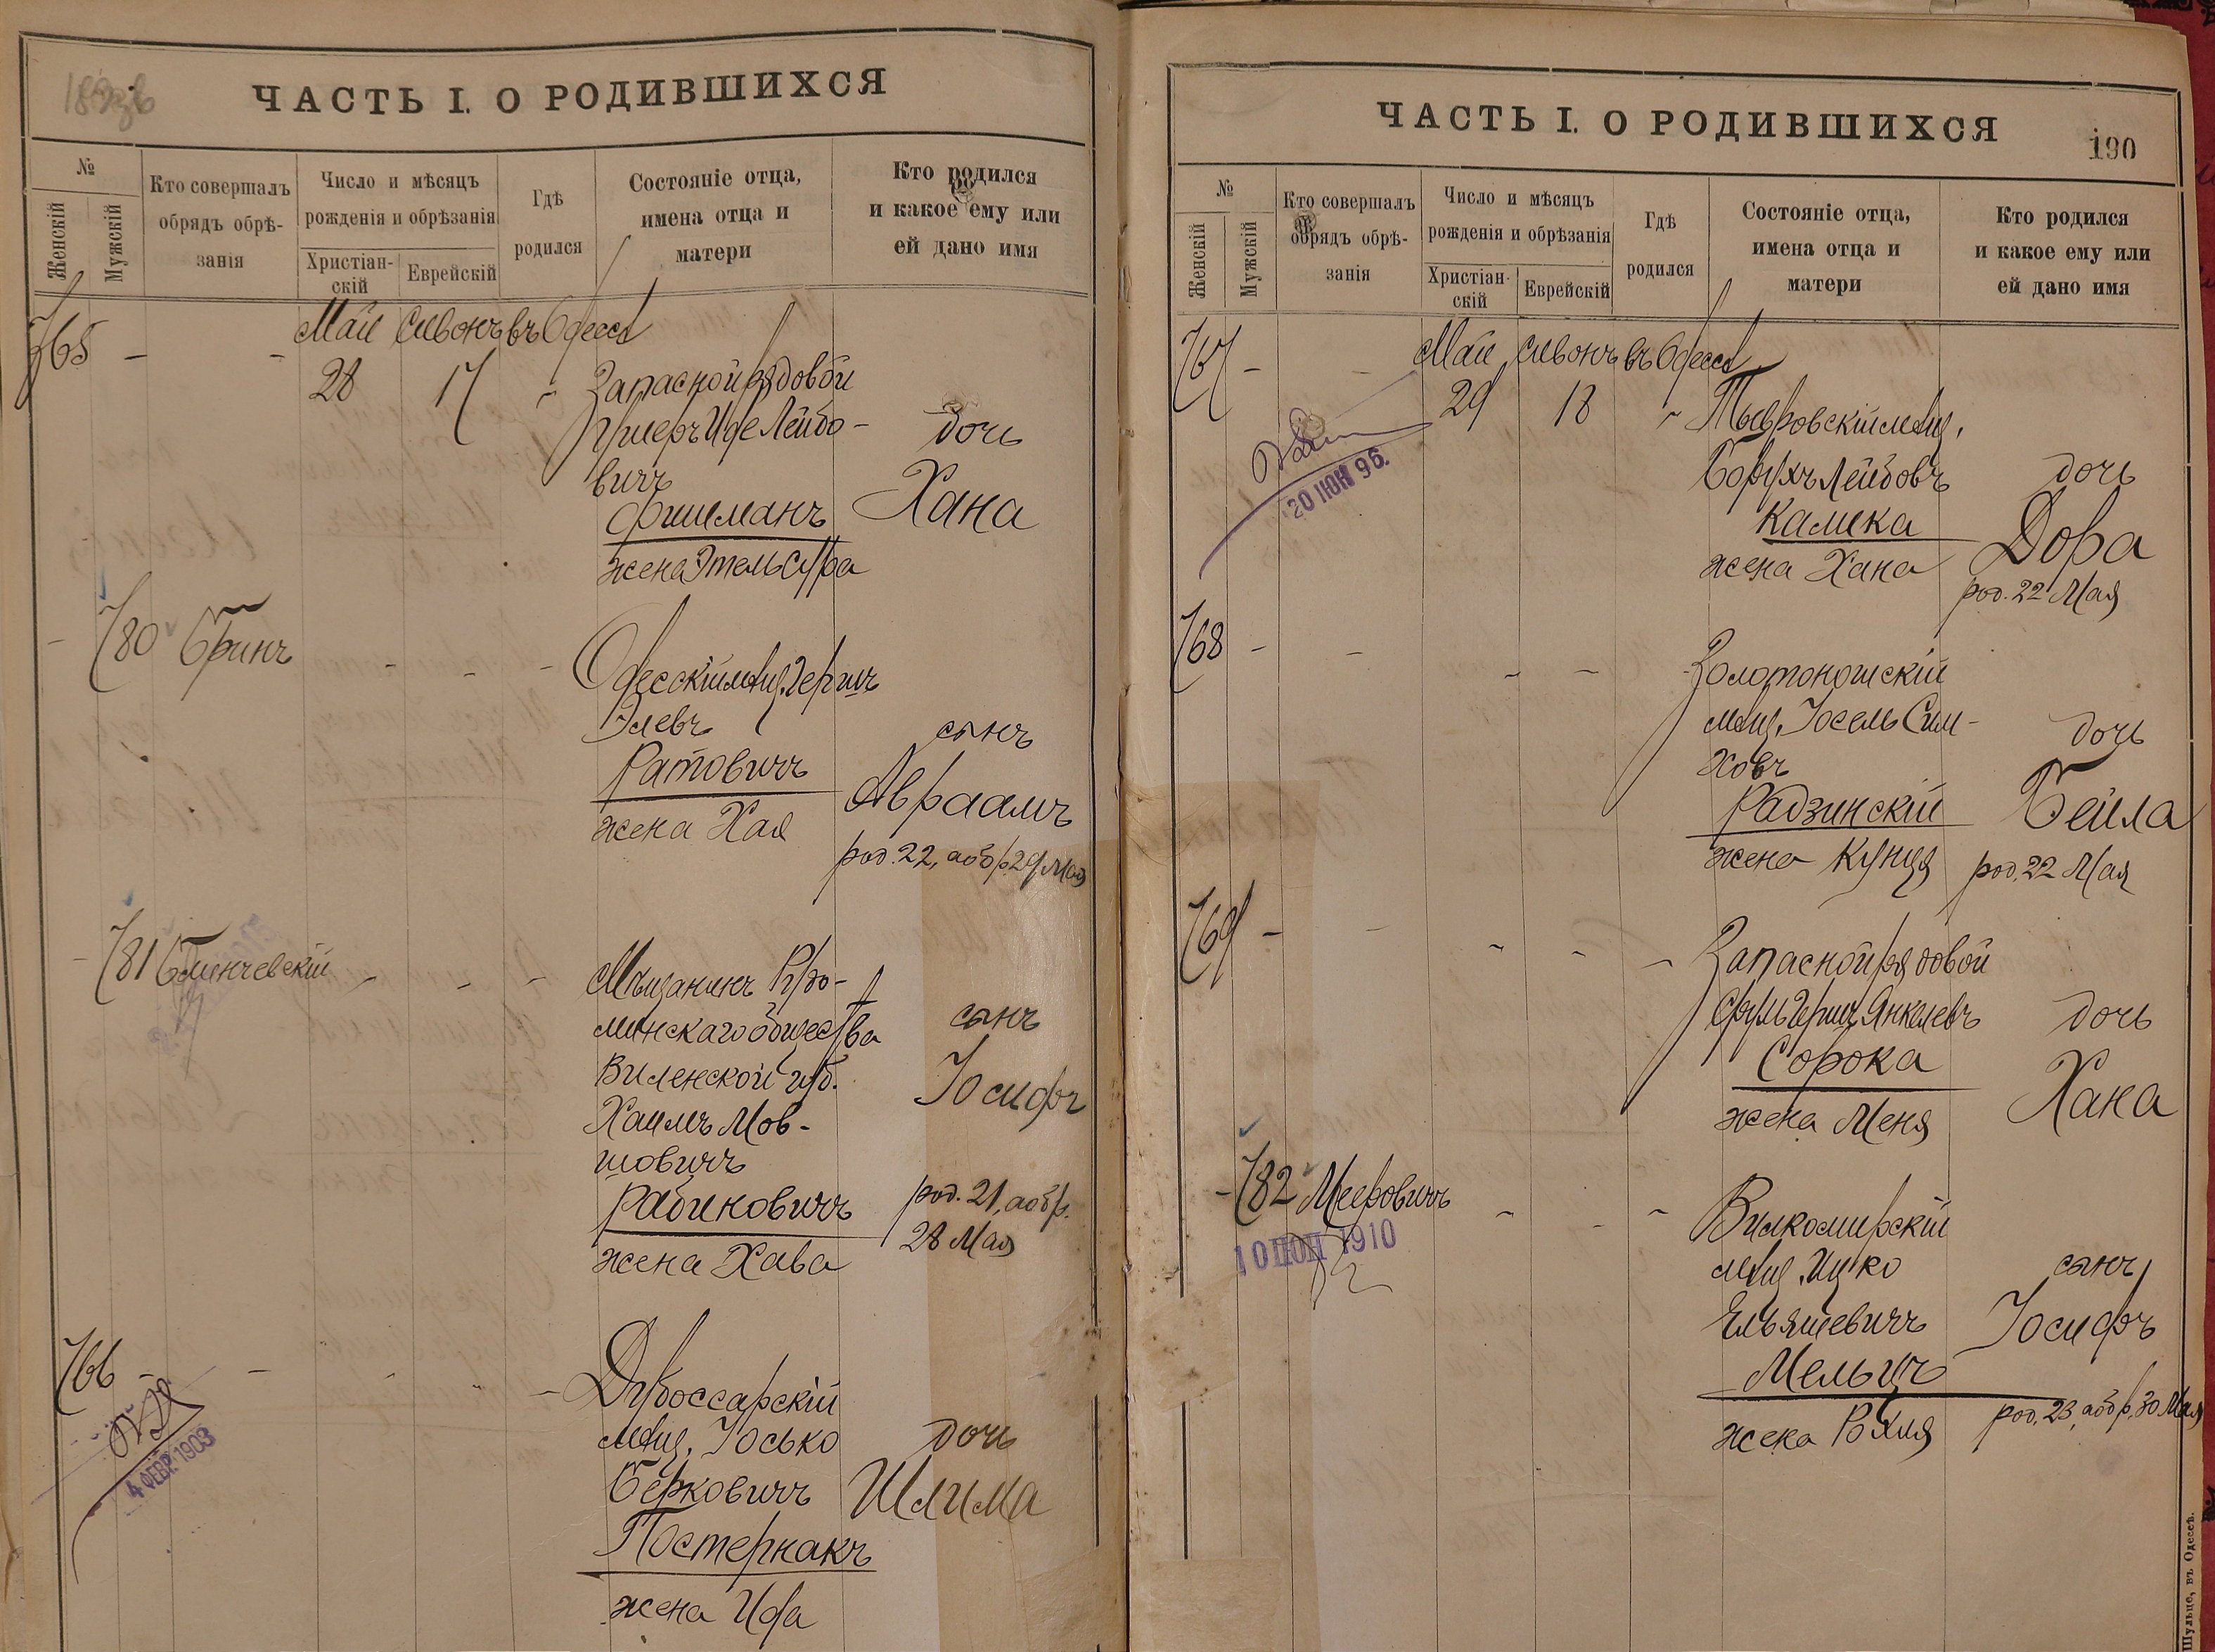 ЧАСТЬ I. О РОДИВШИХСЯ
№
Женскій
Мужскій
Кто совершалъ
обрядъ обрѣ-
занія
Число и мѣсяцъ
рожденія и обрѣзанія
Христіан-
скій
Еврейскій
Гдѣ
родился
Состояніе отца,
имена отца и
матери
Кто родился
и какое ему или
ей дано имя
765 - - Май Сивонъ въ Одессѣ
28 17 Запасной рядовой
Лейбо-
вичъ
Фишманъ
жена Этель Сура
дочь
Хана
- 780 Бринъ - - - Одесскій мѣщ. Герш
Элевъ
Ратовичъ
жена Хая
сынъ
Авраамъ
род. 22, а обр. 29 Мая
- 781 - - - Мѣщанинъ
общества
Виленской губ.
Хаимъ Мов-
шовичъ
Рабиновичъ
жена Хава
сынъ
Іосифъ
род. 21, а обр.
28 Мая
766 - - - - - Дубоссарскій
мѣщ. Іосько
Берковичъ
Постернакъ
жена Ита
дочь
Шлима
4 ФЕВР. 1903
ЧАСТЬ I. О РОДИВШИХСЯ
190
№
Женскій
Мужскій
Кто совершалъ
обрядъ обрѣ-
занія
Число и мѣсяцъ
рожденія и обрѣзанія
Христіан-
скій
Еврейскій
Гдѣ
родился
Состояніе отца,
имена отца и
матери
Кто родился
и какое ему или
ей дано имя
767 - - Май Сивонъ въ Одессѣ
29 18 Тывровскій мѣщ.
Борухъ Лейбовъ
Камека
жена Хана
дочь
Дора
род. 22 Мая
20 ІЮН 96.
768 - - - - - Золотоношскій
мѣщ. Іосель Сим-
ховъ
Радзинскій
жена Кунця
дочь
Бейла
род. 22 Мая
769 - - - - - Запасной рядовой
Сруль Герш Янкелевъ
Сорока
жена Меня
дочь
Хана
- 782 Мееровичъ - - - Вилкомирскій
мѣщ. Ицко
Ельяшевичъ
Мельцъ
жена Рохля
сынъ
Іосифъ
род. 23, а обр. 30 Мая
10 ІЮЛ 1910
Шульце, въ Одессѣ.